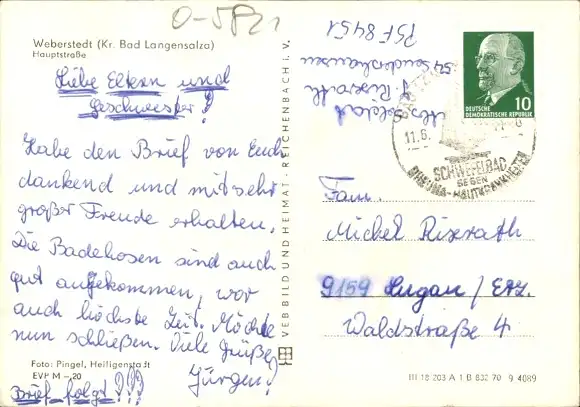 O-5821
Weberstedt (Kr. Bad Langensalza)
Hauptstraße
Liebe Eltern und
Geschwester!
Habe den Brief von Euch
dankend und mit sehr
großer Freude erhalten.
Die Badehosen sind auch
gut angekommen, war
auch höchste Zeit. Möchte
nun schließen. Viele Grüße
Jürgen!
Foto: Pingel, Heiligenstadt
EVP M -,20
Brief folgt!!!
VEB BILD UND HEIMAT · REICHENBACH i. V.
Abs. Soldat
J. Rixrath
54 Sondershausen
PSF 8451
DEUTSCHE
DEMOKRATISCHE REPUBLIK
10
11.6.
SCHWEFELBAD
GEGEN
RHEUMA-HAUTKRANKHEITEN
Fam.
Michel Rixrath
9159 Lugau / Erz.
Waldstraße 4
III 18 203 A 1 B 832 70 9 4089